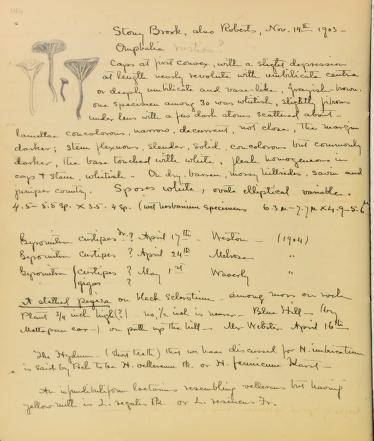 Stony Brook, also Roberts, Nov. 19th 1903 -
Omphalia rustica?
Caps at first convex, with a slight depression
at length nearly revolute with umbilicate centre
or deeply umbilicate and vase-like, grayish-brown.
one specimen among 30 was whitish, slightly
under lens with a few dark atoms scattered about -
lamellae concolorous, narrow, decurrent, not close. The margin
darker; stem flexuous, slender, solid, concolorous but commonly
darker, the base touched with white, flesh homogeneous in
cap & stem, whitish - On dry, barren, mossy hillsides, savin and
juniper county. Spores white, ovate elliptical variable -
4.5-5.5 sp. x 3.5-4 sp. (wet herbarium specimens 6.3μ-7.7μ x 4.9-5.6μ
Gyromitra curtipes Fr.? April 17th - Weston - (1904)
Gyromitra curtipes ? April 24th Melrose "
Gyromitra {curtipes ? May 1st Waverly "
gigas ?
A stalked peziza on black sclerotium - among moss on rock
Plant 3/4 inch high(?) no, 1/2 inch is nearer - Blue Hill - (by
Mattapan car -) on path up the hill - Mr Webster April 16th
The Hydnum - (short teeth) that we have discussed for H. imbricatum
is said by to be H. vellereum Pk. or H.
An infundibuliform lactarius resembling vellereus but having
yellow milk is L. regalis Pk. or L. resimus Fr.